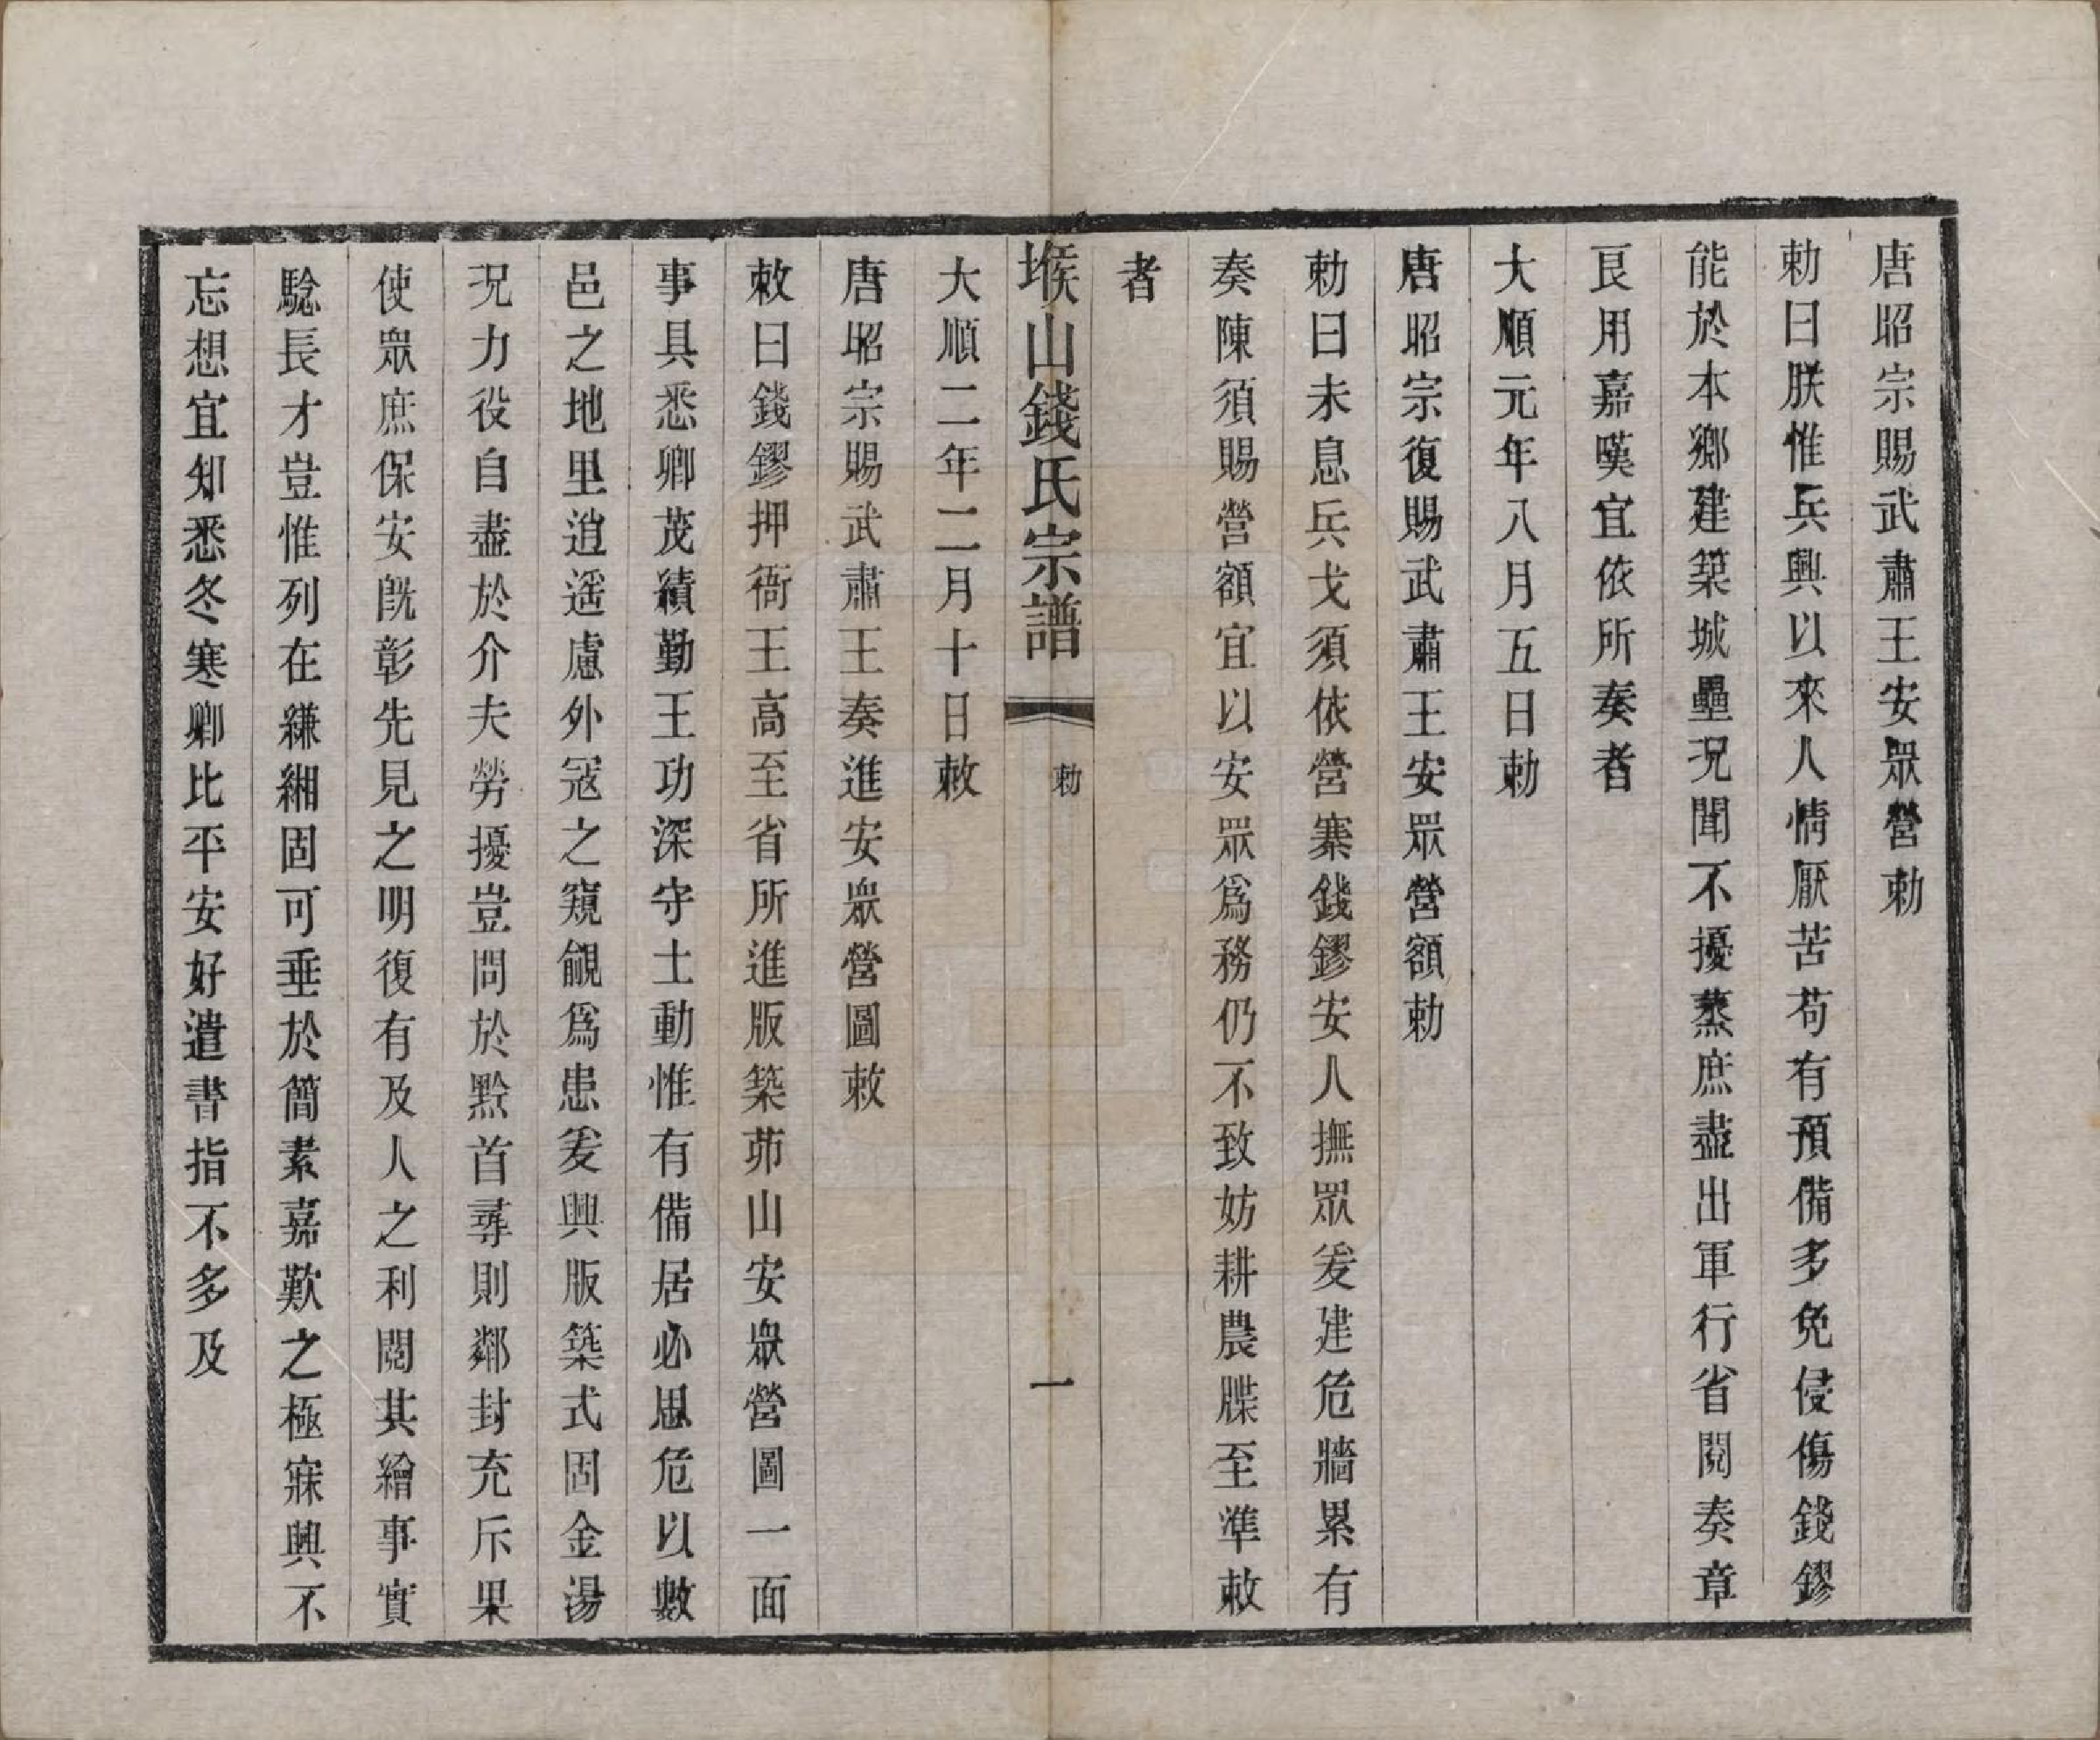 唐昭宗賜武肅王安眾營勅
勅曰朕惟兵興以來人情厭苦苟有預備多免侵傷錢鏐
能於本鄉建築城壘況聞不擾蒸庶盡出軍行省閱奏章
良用嘉嘆宜依所奏者
大順元年八月五日勅
唐昭宗復賜武肅王安眾營額勅
勅曰未息兵戈須依營寨錢鏐安人撫眾爰建危牆累有
奏陳須賜營額宜以安眾爲務仍不致妨耕農牒至準敕
者
堠山錢氏宗譜 勅 一
大順二年二月十日敕
唐昭宗賜武肅王奏進安眾營圖敕
敕曰錢鏐押衙王高至省所進版築茆山安眾營圖一面
事具悉卿茂績勤王功深守土動惟有備居必思危以數
邑之地里逍遥慮外寇之窺覦爲患爰興版築式固金湯
況力役自盡於介夫勞擾豈問於黔首尋則鄰封充斥果
使眾庶保安旣彰先見之明復有及人之利閱其繪事實
騐長才豈惟列在縑緗固可垂於簡素嘉歎之極寐興不
忘想宜知悉冬寒卿比平安好遣書指不多及